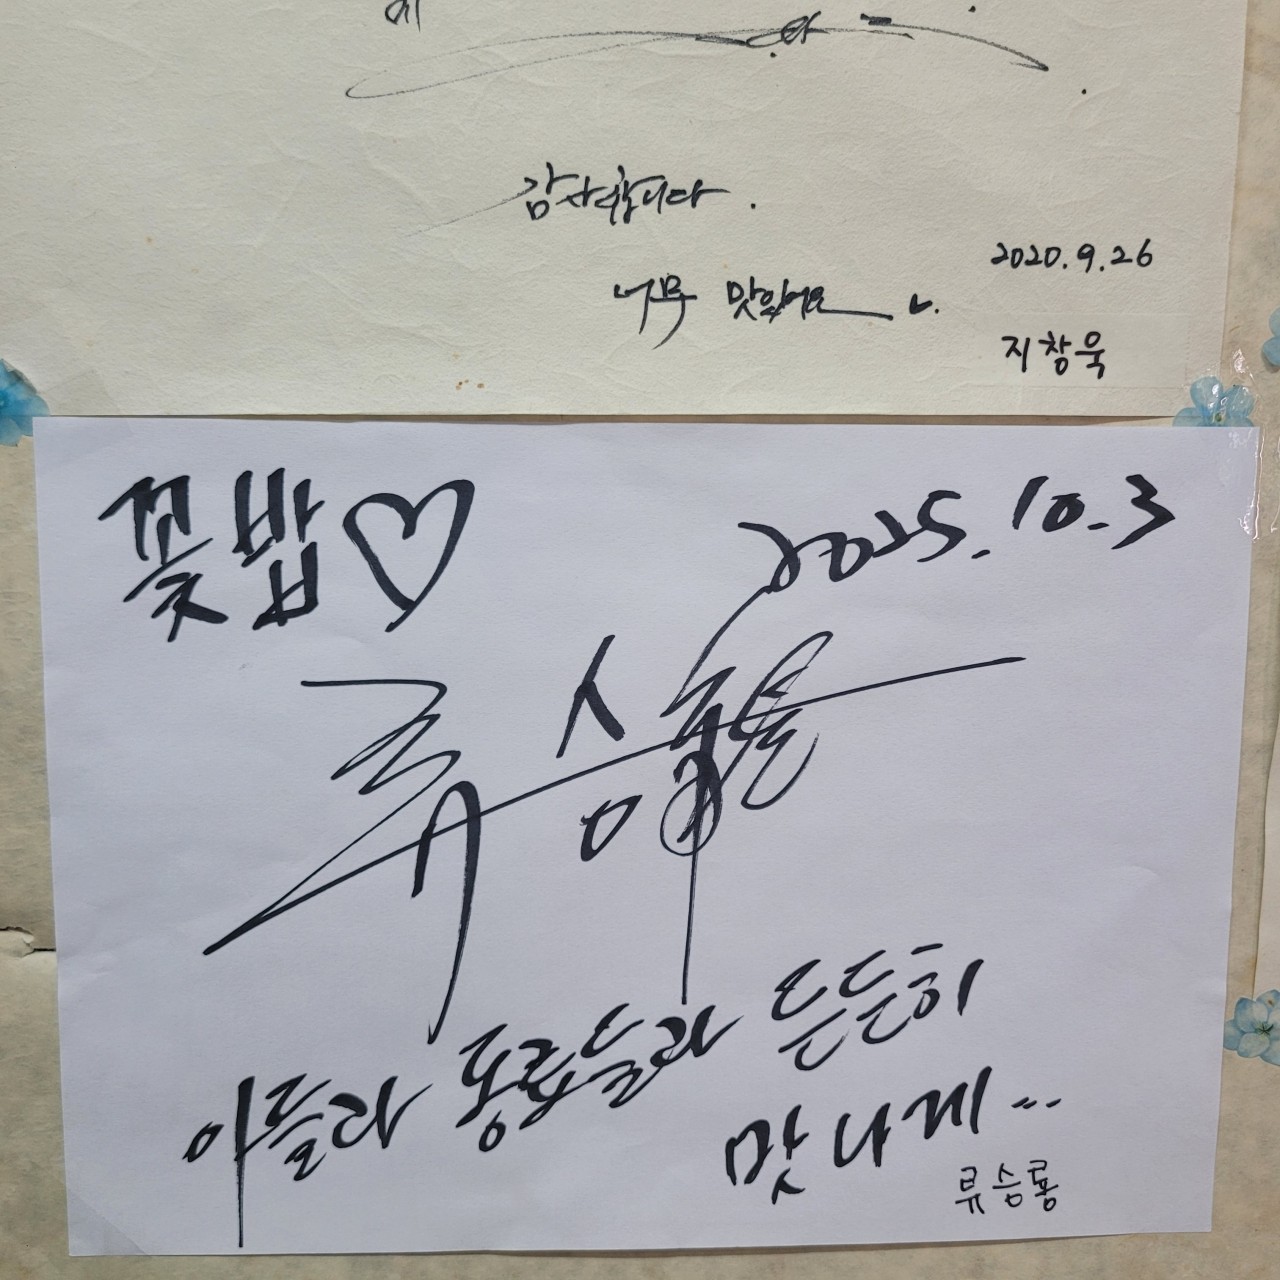 에
감사합니다.
2020.9.26
너무 맛있어요
지창욱
꽃밥♡
2025.10.3
류승룡
아들과 동료들과 든든히
맛나게...
류승룡